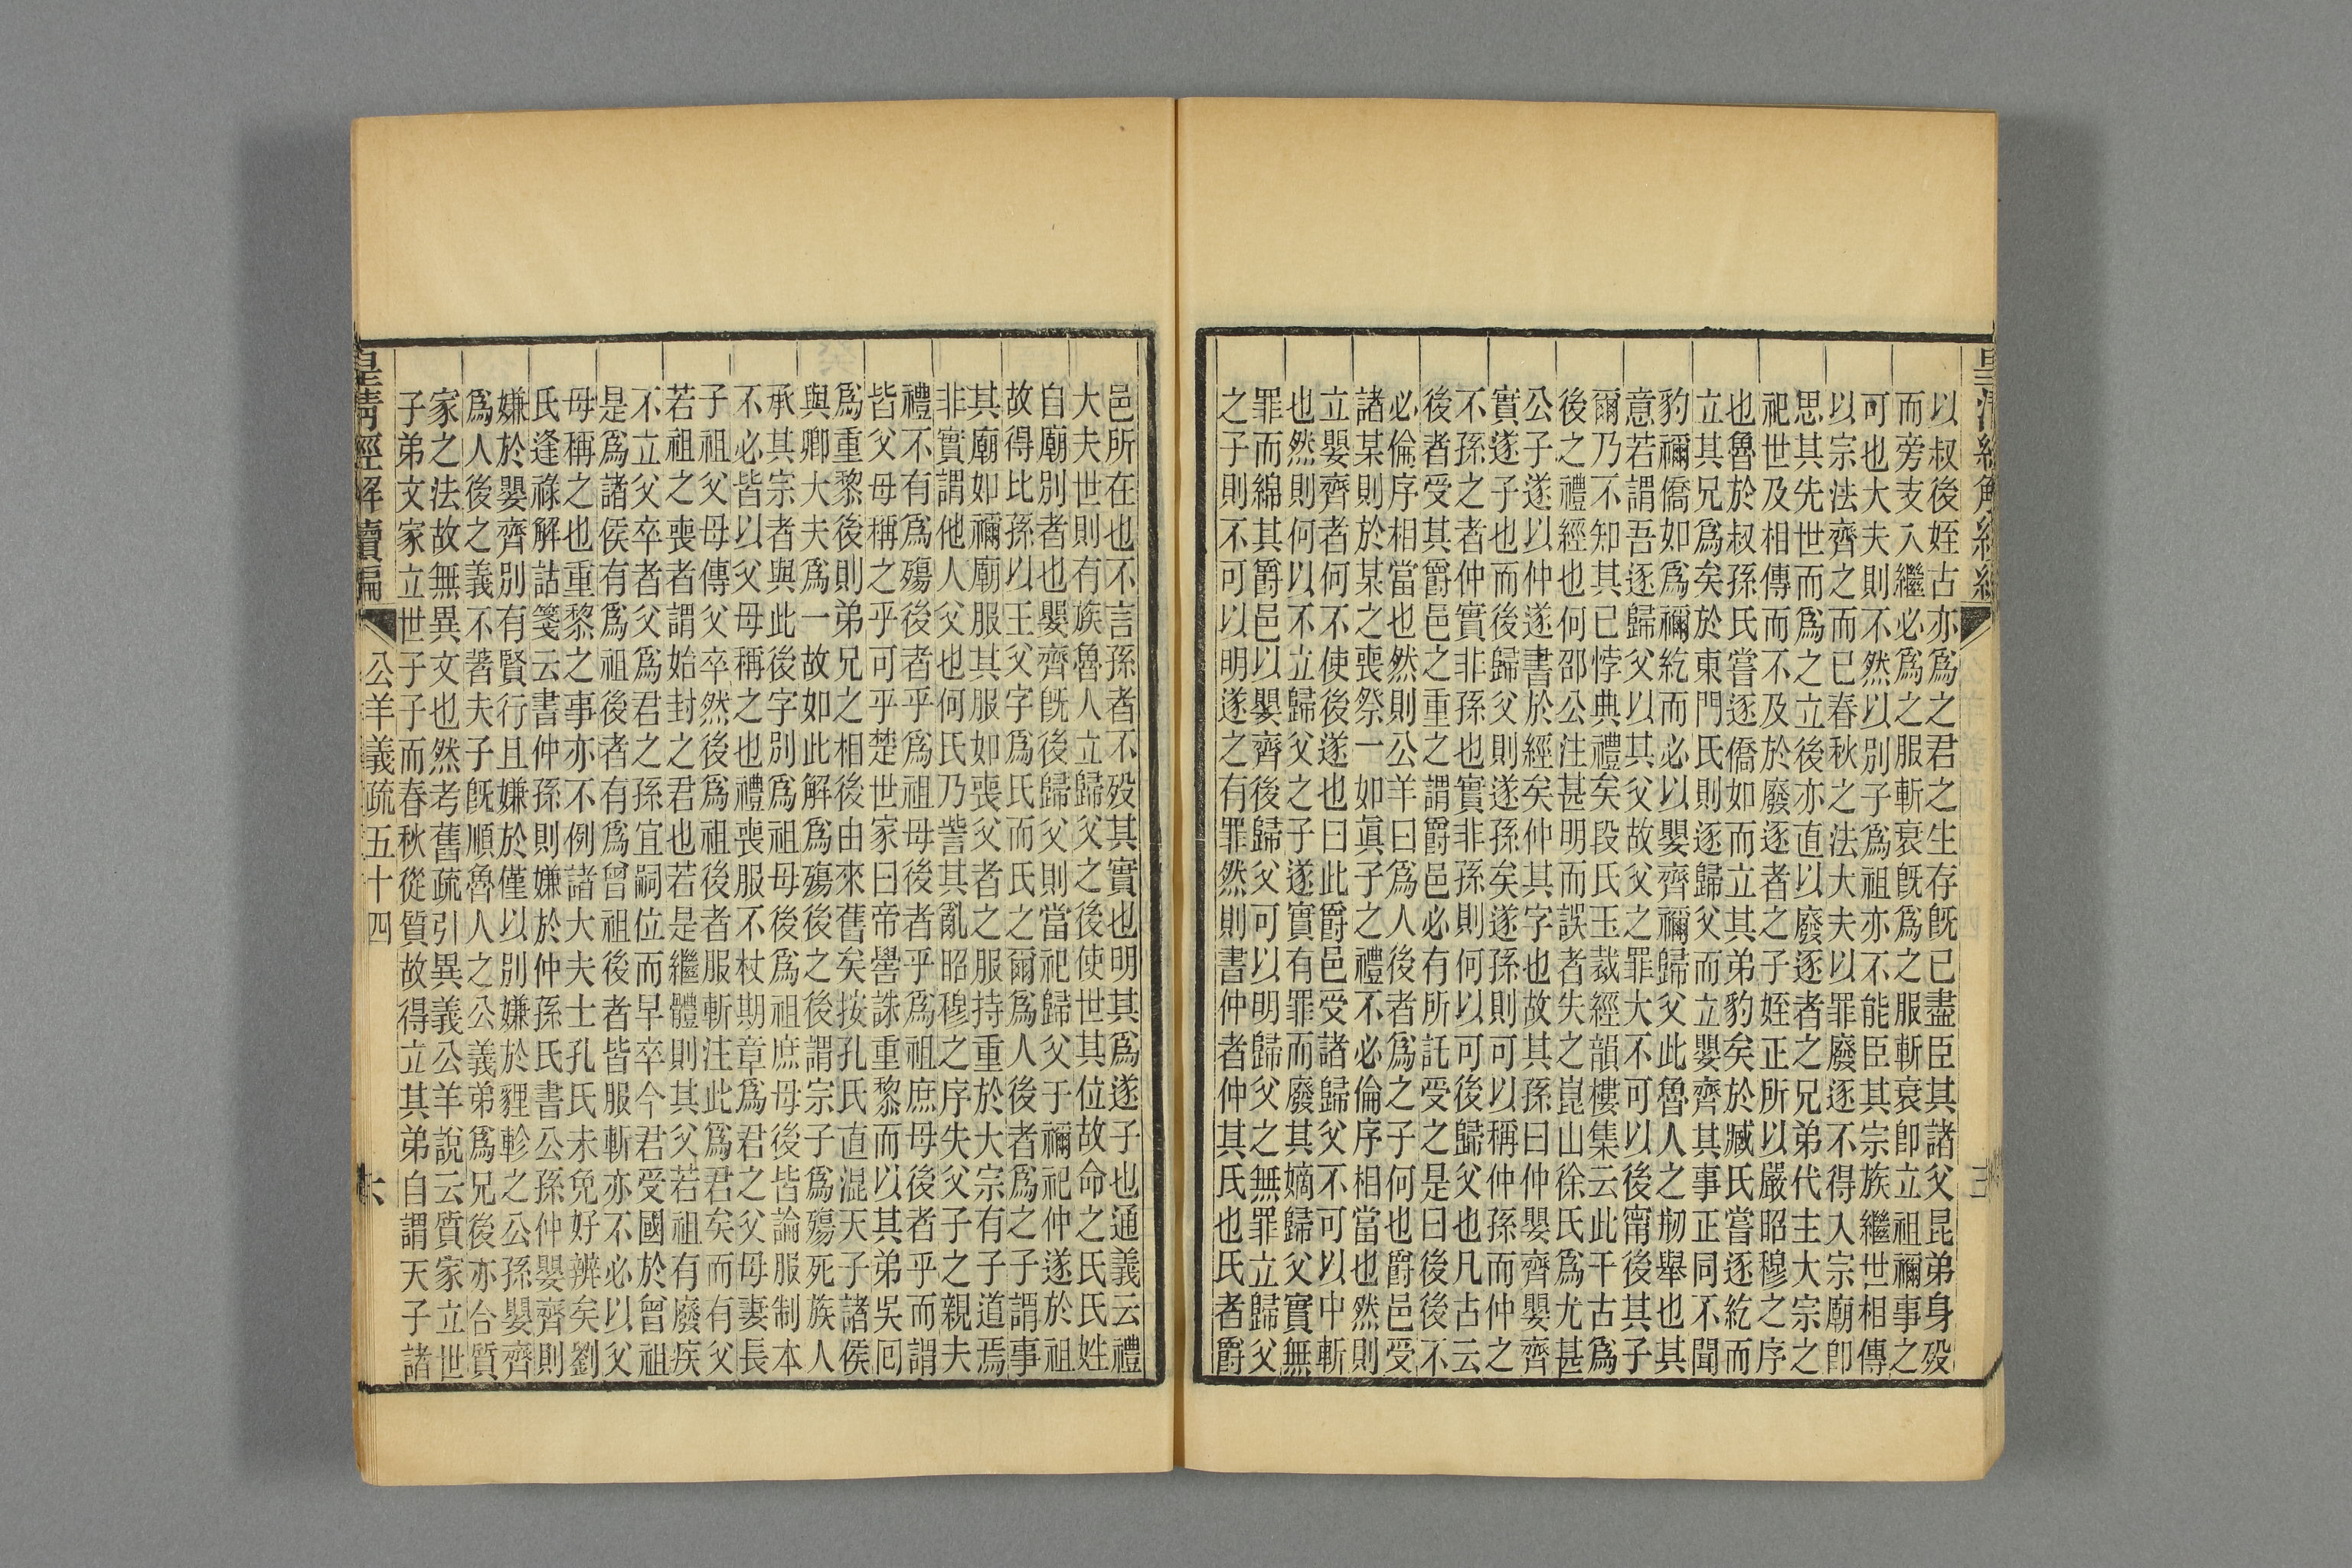 以叔後姪古亦爲之君之生存旣已盡臣其諸父昆弟身殁
而旁支入繼必爲之服斬衰旣爲之服斬衰卽立祖禰事之
可也大夫則不然以別子爲祖亦不能臣其宗族繼世相傳
以宗法齊之而已春秋之法大夫以罪廢逐不得入宗廟卽
思其先世而爲之立後亦直以廢逐者之兄弟代主大宗之
祀世及相傳而不及於廢逐者之子姪正所以嚴昭穆之序
也魯於叔孫氏嘗逐僑如而立其弟豹矣於臧氏嘗逐紇而
立其兄爲矣於東門氏則逐歸父而立嬰齊其事正同不聞
豹禰僑如爲禰紇而必以嬰齊禰歸父此魯人之刱舉也其
意若謂吾逐歸父以其父故父之罪大不可以後甯後其子
爾乃不知其已悖典禮矣段氏玉裁經韻樓集云此干古爲
後之禮經也何邵公注甚明而誤者失之崑山徐氏爲尤甚
公子遂以仲遂書於經矣仲其字也故其孫曰仲嬰齊嬰齊
實遂子也而後歸父則遂孫矣遂孫則可以稱仲孫而仲之
不孫之者仲實非孫也實非孫則何以可後歸父也凡占云
後者受其爵邑之重之謂爵邑必有所託受之是曰後後不
必倫序相當也然則公羊曰爲人後者爲之子何也爵邑受
諸某則於某之喪祭一如眞子之禮不必倫序相當也然則
立嬰齊者何不使後遂也曰此爵邑受諸歸父不可以中斬
也然則何以不立歸父之子遂實有罪而廢其嫡歸父實無
罪而綿其爵邑以嬰齊後歸父可以明歸父之無罪立歸父
之子則不可以明遂之有罪然則書仲者仲其氏也氏者爵
邑所在也不言孫者不殁其實也明其爲遂子也通義云禮
大夫世則有族魯人立歸父之後使世其位故命之氏氏姓
自廟別者也嬰齊旣後歸父則當祀歸父于禰祀仲遂於祖
故得比孫以王父字爲氏而氏之爾爲人後者爲之子謂事
其廟如禰廟服其服如喪父者之服持重於大宗有子道焉
非實謂他人父也何氏乃訾其亂昭穆之序失父子之親夫
禮不有爲殤後者乎爲祖母後者乎爲祖庶母後者乎而謂
皆父母稱之乎可乎楚世家曰帝嚳誅重黎而以其弟吳回
爲重黎後則弟兄之相後由來舊矣按孔氏直混天子諸侯
與卿大夫爲一故如此解爲殤後之後謂宗子爲殤死族人
承其宗者與此後字別爲祖母後爲祖庶母後皆論服制本
不必皆以父母稱之也禮喪服不杖期章爲君之父母妻長
子祖父母傳父卒然後爲祖後者服斬注此爲君矣而有父
若祖之喪者謂始封之君也若是繼體則其父若祖有廢疾
不立父卒者父爲君之孫宜嗣位而早卒今君受國於曾祖
是爲諸侯有爲祖後者有爲曾祖後者皆服斬亦不必以父
母稱之也重黎之事亦不例諸大夫士孔氏未免好辨矣劉
氏逢祿解詁箋云書仲孫則嫌於仲孫氏書公孫仲嬰齊則
嫌於嬰齊別有賢行且嫌於僅以別嫌於貍軫之公孫嬰齊
爲人後之義不著夫子旣順魯人之公義弟爲兄後亦合質
家之法故無異文也然考舊疏引異義公羊說云質家立世
子弟文家立世子子而春秋從質故得立其弟自謂天子諸
公羊義疏五十四